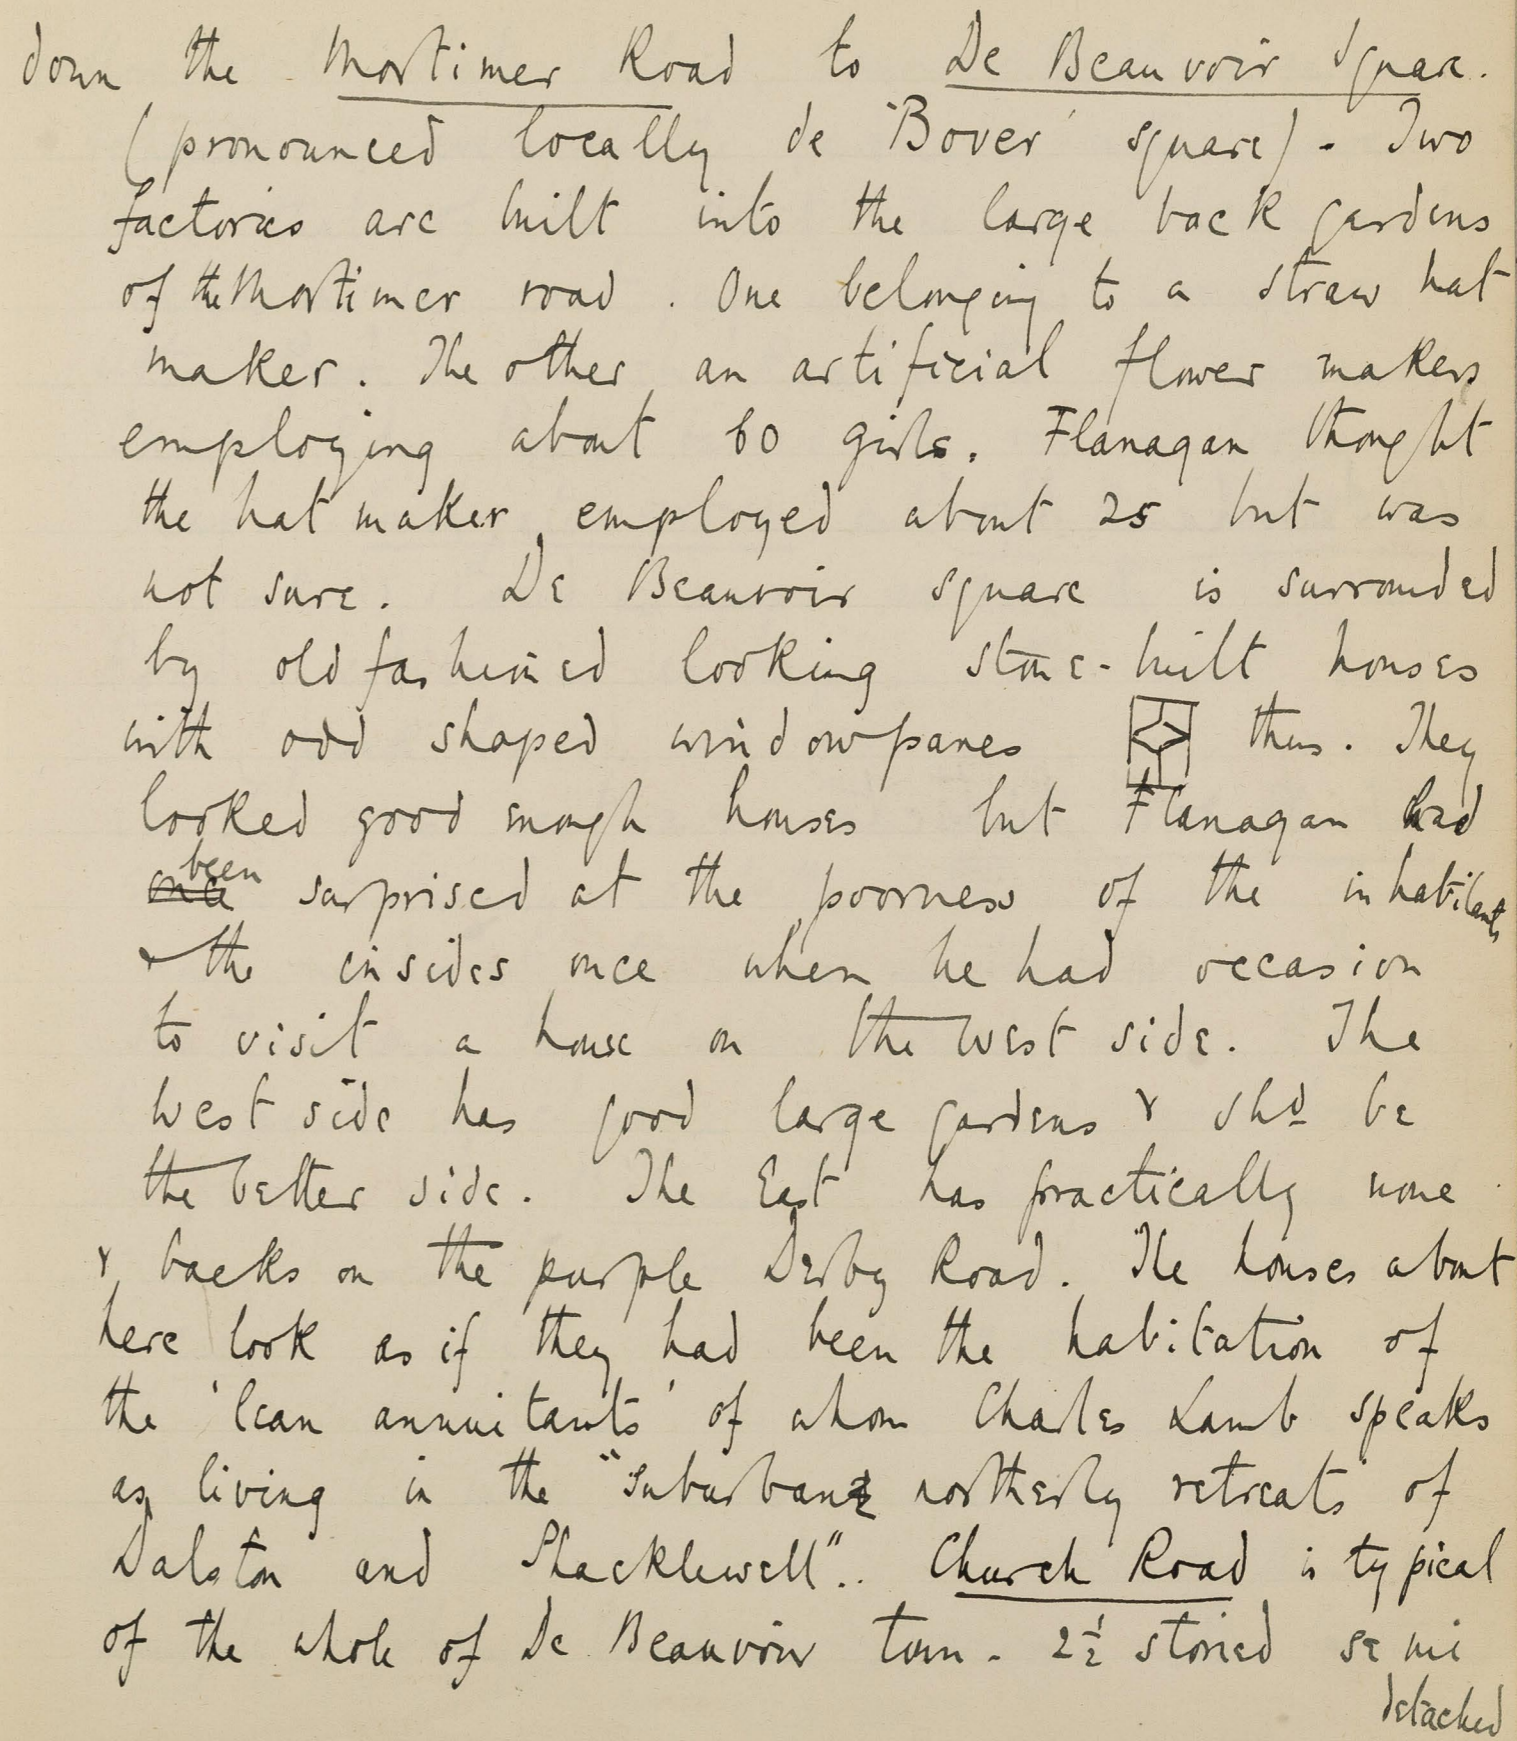 down the Mortimer Road to De Beauvoir Square.
(pronounced locally de 'Bover' square) - Two
factories are built into the large back gardens
of the Mortimer road. One belonging to a straw hat
maker. The other an artificial flower makers
employing about 60 girls. Flanagan thought
the hat maker employed about 25 but was
not sure. De Beauvoir square is surrounded
by old fashioned looking stone-built houses
with odd shaped windowpanes thus. They
looked good enough houses but Flanagan had
once been surprised at the poorness of the inhabitants
& the insides once when he had occasion
to visit a house on the west side. The
West side has good large gardens & shd be
the better side. The East has practically none
& backs on the purple Derby Road. The houses about
here look as if they had been the habitation of
the 'lean annuitants' of whom Charles Lamb speaks
as living in the "suburban northerly retreats of
Dalston and Shacklewell".. Church Road is typical
of the whole of De Beauvoir town - 2½ storied semi
detached